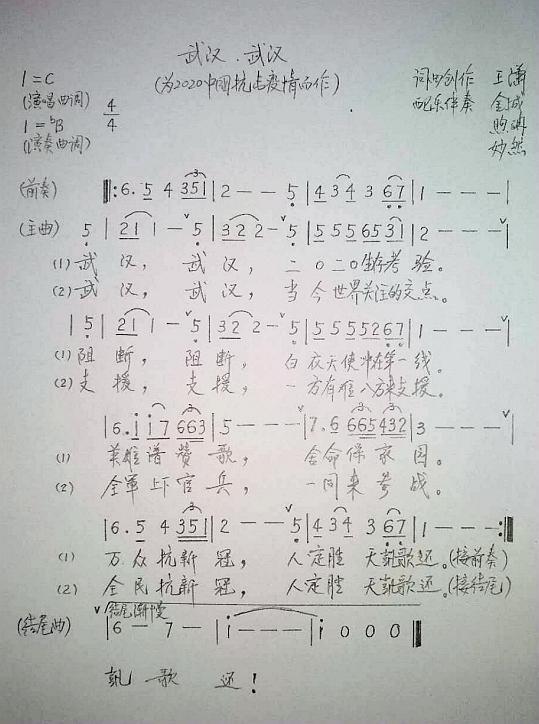 武汉.武汉
(为2020中国抗击疫情而作)
1=C
(演唱曲调)
4/4
1=bB
(演奏曲调)
词曲创作 王潇
配乐伴奏 金城
妙然
(前奏) ‖:6.5 4 351|2 - - 5|4 34 3 67|1 - - -|
(主曲) 5|21 1 - 5|32 2 - 5|5 5 5 65 31|2 - - -|
(1) 武 汉, 武 汉, 二〇二〇生存考验。
(2) 武 汉, 武 汉, 当今世界关注的交点。
|5|21 1 - 5|32 2 - 5|5 5 5 52 67|1 - - -|
(1) 阻 断, 阻 断, 白衣天使冲在第一线。
(2) 支 援, 支 援, 一方有难八方来支援。
|6.i i7 663|5 - - -|7.6 665 432|3 - - -|
(1) 英雄谱赞歌, 舍命保家国。
(2) 全军上下官兵, 一同来参战。
|6.5 4 351|2 - - 5|4 34 3 67|1 - - -:‖
(1) 万众抗新冠, 人定胜天凯歌还。(接前奏)
(2) 全民抗新冠, 人定胜天凯歌还。(接结尾)
结尾渐慢
(结尾曲) |6 - 7 -|i - - -|i 0 0 0‖
凯 歌 还!